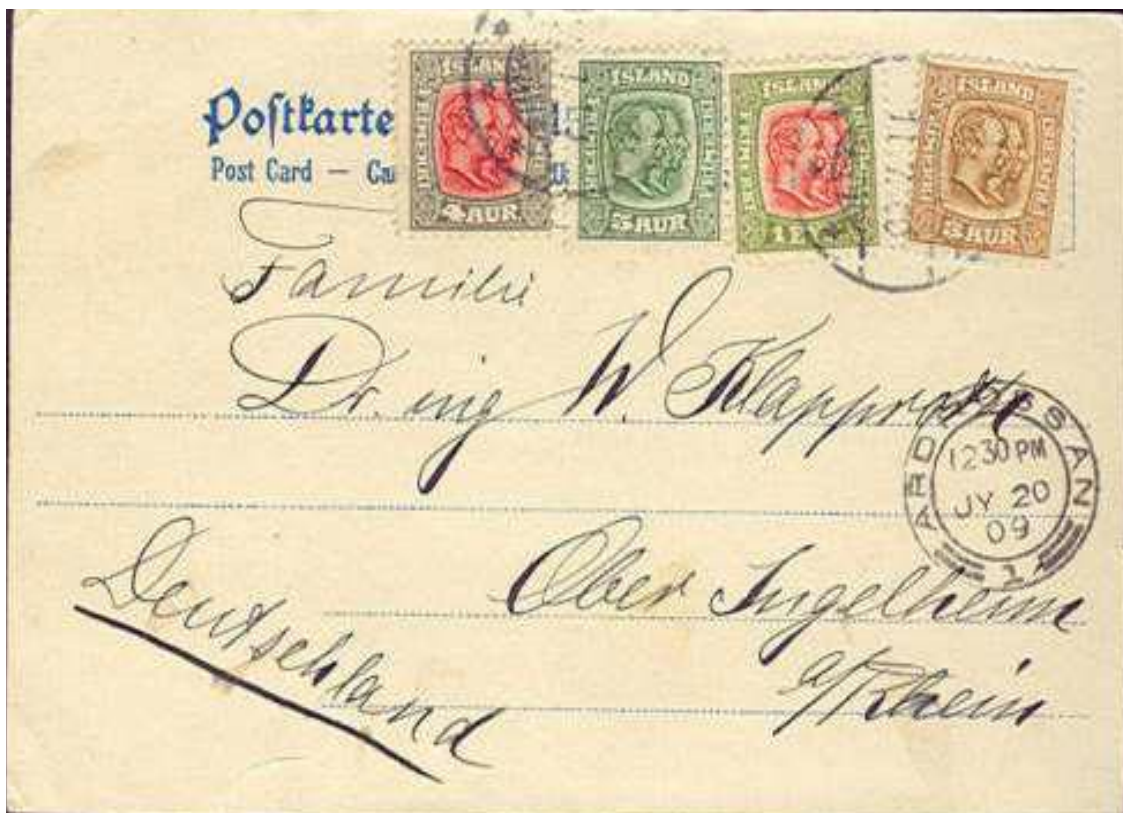 Postkarte
Post Card —
ÍSLAND
4 AUR
ÍSLAND
5 AUR
ÍSLAND
1 EYR
ÍSLAND
3 AUR
Familie
Dr. ing W. Klapproth
ARDROSSAN
12 30 PM
JY 20
09
1
Ober Ingelheim
a/Rhein
Deutschland